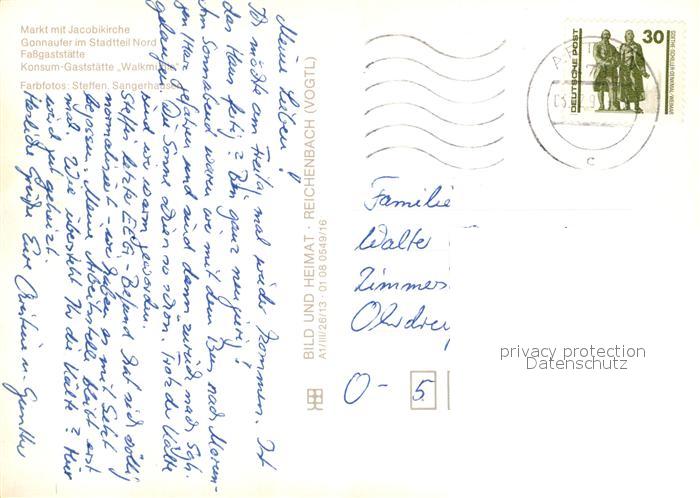 Markt mit Jacobikirche
Gonnaufer im Stadtteil Nord
Faßgaststätte
Konsum-Gaststätte „Walkmühle"
Farbfotos: Steffen, Sangerhausen
Meine Lieben!
Ich möchte am Freitag mal wieder kommen. Ist
das Haus fertig? Bin ganz neugierig!
Am Sonnabend waren wir mit dem Bus nach
gen (Harz) gefahren und sind dann zurück nach Sgh.
gelaufen. Die Sonne schien so schön. Trotz der Kälte
sind wir warm geworden.
Steffis letzte EEG-Befund hat sich völlig
normalisiert - wir haben es mit Sekt
begossen. Meine Arbeitsstelle bleibt erst
mal. Wie übersteht Ihr die Kälte? Hier
wird gut geheizt.
Herzliche Grüße Eure Christine u. Günther
BILD UND HEIMAT · REICHENBACH (VOGTL)
A1/III/26/13 01 08 0549/16
30
DEUTSCHE POST
GOETHE-SCHILLER-DENKMAL · WEIMAR
c
Familie
Walter
Zimmer
Ohrdru
O- 5
privacy protection
Datenschutz